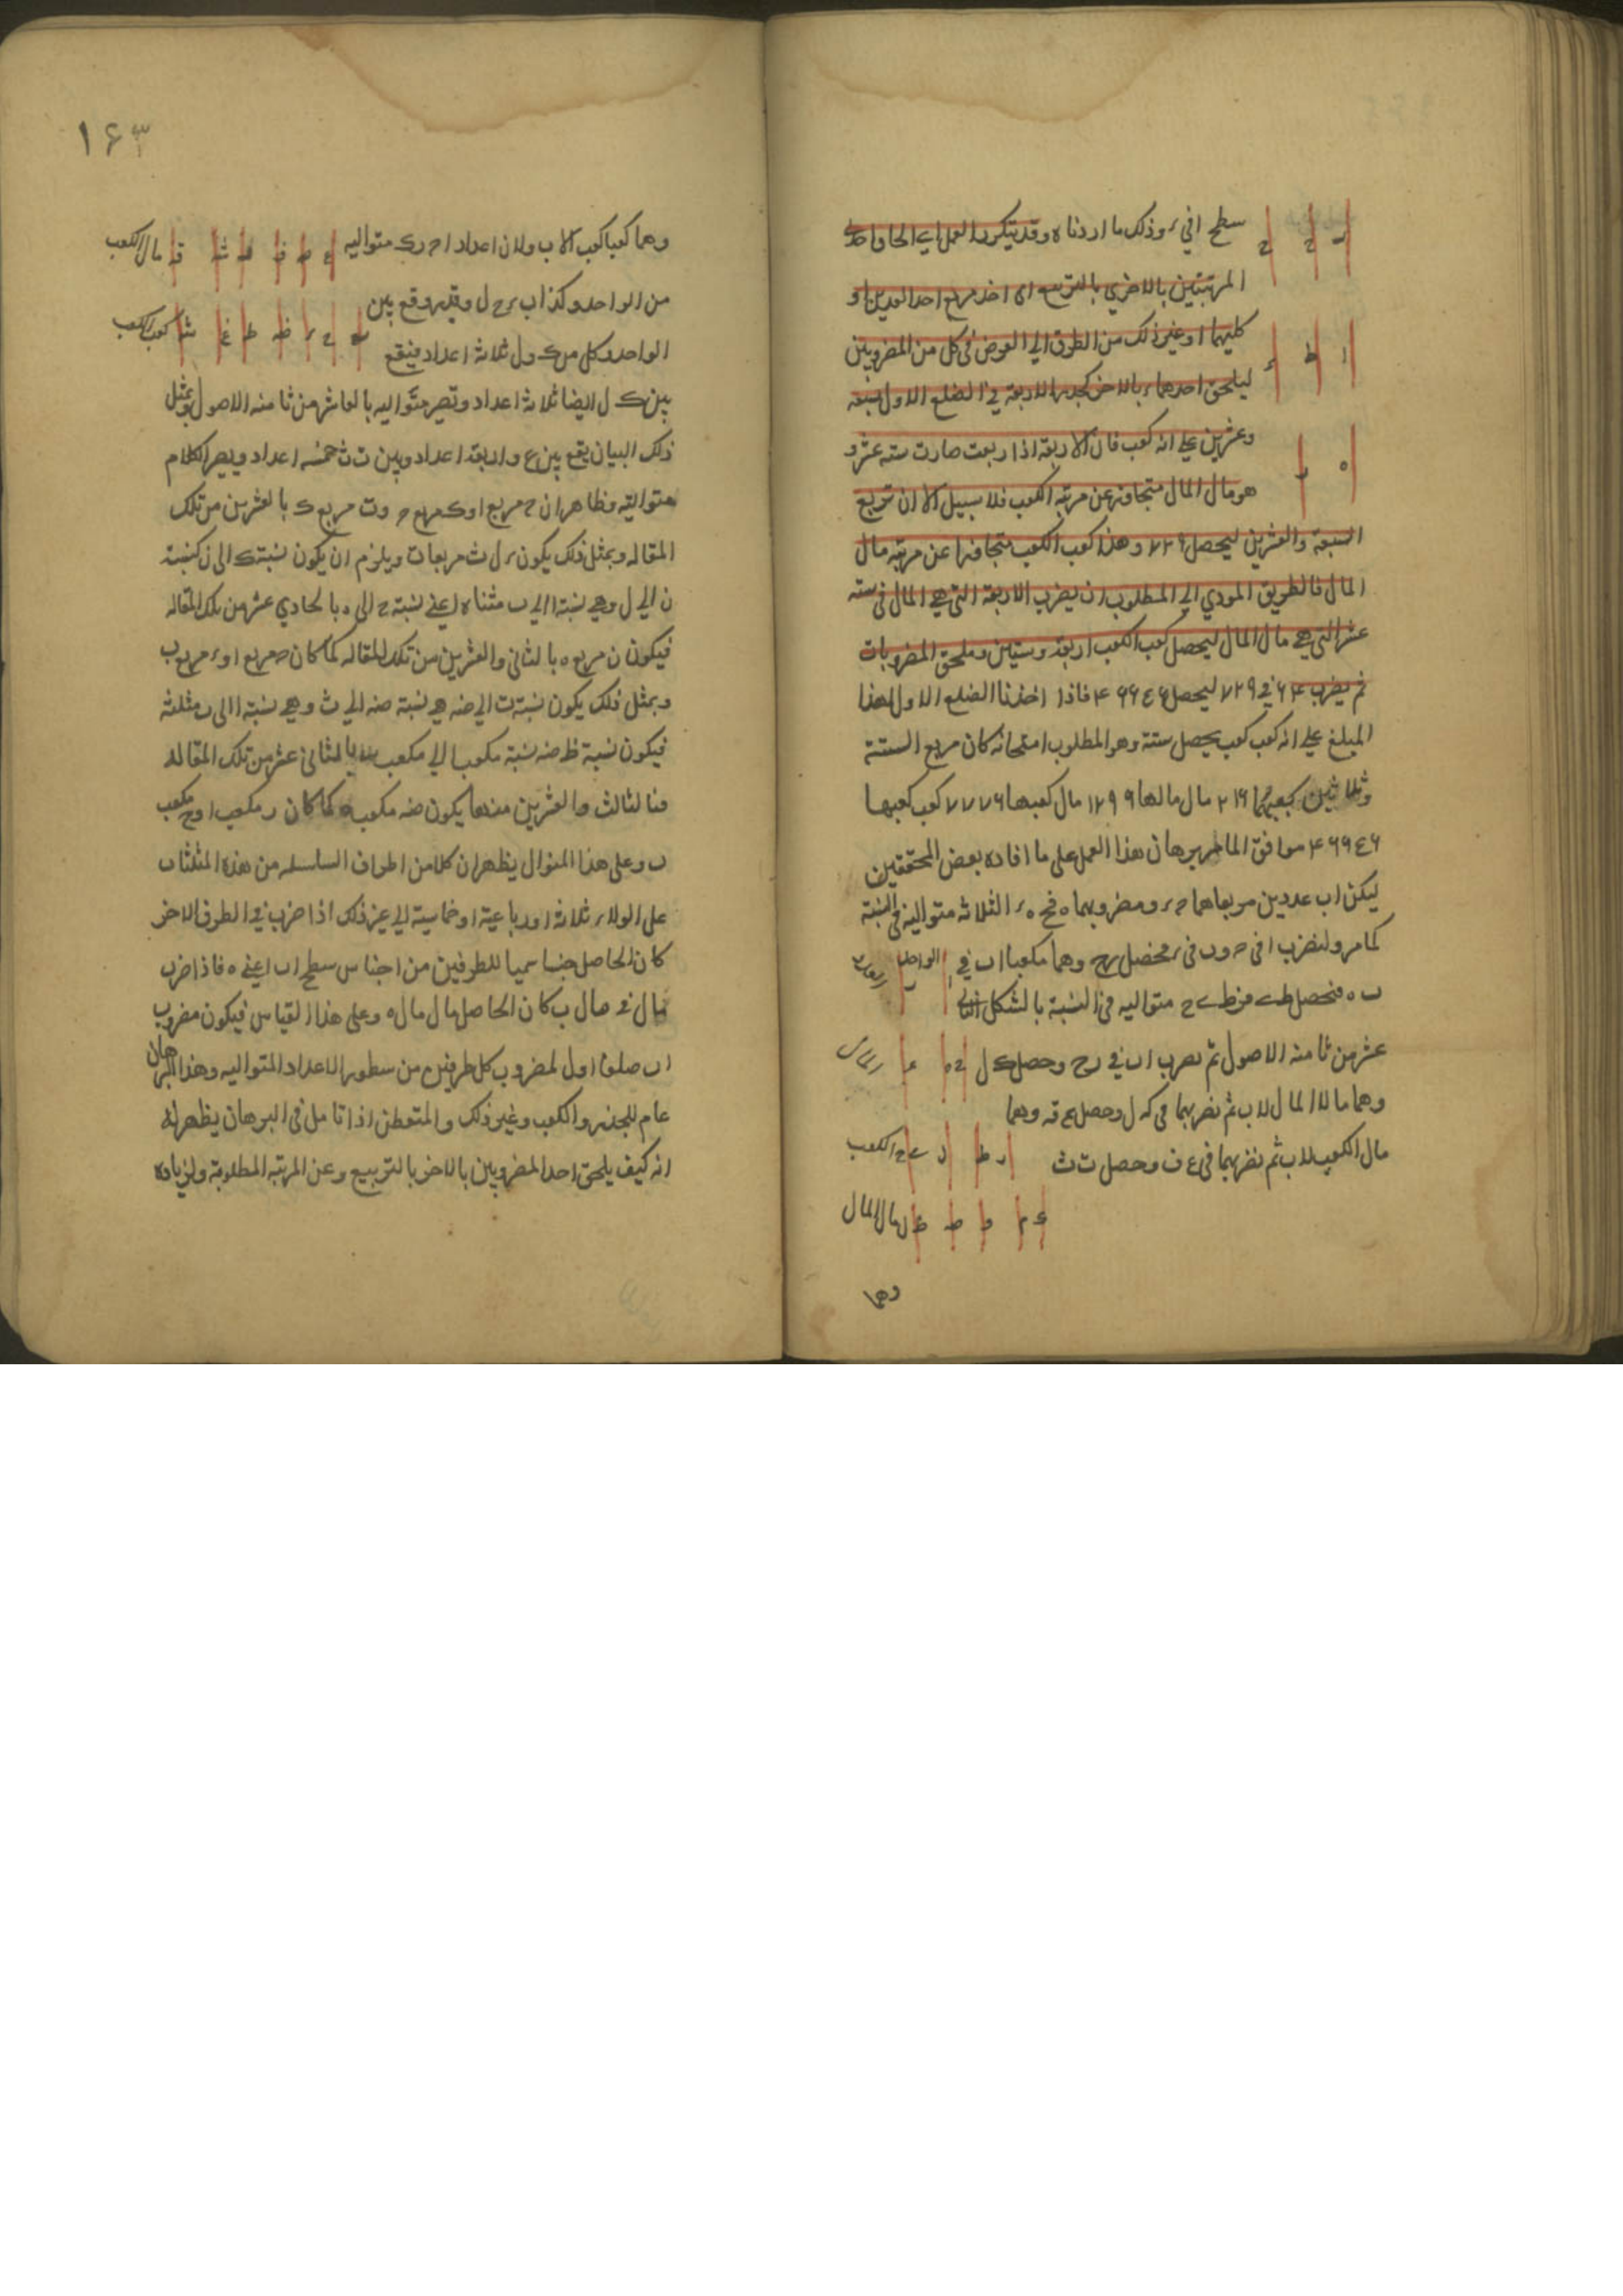 سطح ا في ر وذلك ما اردناه وقد يتكرر العمل اي الحاق احدي
المرتبتين بالاخري بالتربيع اي اخذ مربع احد العددين او
كليهما او غير ذلك من الطرق الي العوض في كل من المضروبين
ليلحق احدهما بالاخر كجذر الاربعة في الضلع الاول لسبعة
وعشرين علي انه كعب فان الاربعة اذا ربعت صارت ستة عشر و
هو مال المال متجاوز عن مرتبة الكعب فلا سبيل الا ان تربع
السبعة والعشرين ليحصل ٧٢٩ وهذا كعب الكعب متجاوزا عن مرتبة مال
المال فالطريق المودي الي المطلوب ان يضرب الاربعة التي هي المال في ستة
عشر التي هي مال المال ليحصل كعب الكعب اربعة وستين وملحق المضروبات
ثم يضرب ٦٤ في ٧٢٩ ليحصل ٤٦٦٥٦ فاذا اخذنا الضلع الاول لهذا
المبلغ علي انه كعب كعب يحصل ستة وهو المطلوب امتحانه كان مربع الستة
وثلاثين كعبهما ٢١٦ مال مالها ١٢٩٦ مال كعبها ٧٧٧٦ كعب كعبها
٤٦٦٥٦ موافق الما مر برهان هذا العمل علي ما افاده بعض المحققين
ليكن ا ب عددين مربعاهما ح ر ومضروبهما ه فح ه ر الثلاثة متوالية في النسبة
كما مر ولنضرب ا في ح و ب في ر فحصل وهما مكعبا ا ب في
ب ه فحصل ط ي متواليه في النسبة بالشكل
عشر من ثامنة الاصول ثم نضرب ا ب في وحصل ك ل
وهما مالا المال لاب ثم نضربهما في ه ل وحصل وهما
مال الكعب لاب ثم نضربهما في ع ف وحصل ت ث
الكعب
مال المال
وهما
١٦٣
وهما كعبا كعب لاب ولان اعداد ا ح ر ك متواليه
مال الكعب
من الواحد وكذا ب ر ح ل وقد وقع بين
الواحد وكل من ك و ل ثلاثة اعداد فيقع
كعب الكعب
بين ك ل ايضا ثلاثة اعداد وتصير متواليه بالعاشر من ثامنه الاصول وبمثل
ذلك البيان يقع بين ع و اربعة اعداد وبين ت ث خمسه اعداد ويصير الكلام
متوالية وظاهر ان ح مربع ا و ك مربع ح و ت مربع ك بالعشرين من تلك
المقاله وبمثل ذلك يكون ر ل ث مربعات ويلزم ان يكون نسبة ك الى ن كنسبة
ن الي ل وهي نسبة ا الي ب مثناه اعني نسبة ح الى ه بالحادي عشر من تلك المقاله
فيكون ن مربع ه بالثاني والعشرين من تلك المقاله كما كان ح مربع ا و ر مربع ب
وبمثل ذلك يكون نسبة ت الي ضه هي نسبة ضه الي ث وهي نسبة ا الى ب مثلثة
فيكون نسبة ظ ضه نسبة مكعب ا الي مكعب ب بالثاني عشر من تلك المقاله
فبالثالث والعشرين منها يكون ضه مكعب ه كما كان ر مكعب ا و ح مكعب
ب وعلى هذا المنوال يظهر ان كلا من اطراف السلسله من هذه المثلثات
علي الولاء ثلاثة او رباعية او خماسية الي غير ذلك اذا ضرب في الطرف الاخر
كان الحاصل جنسا سميا للطرفين من اجناس سطح ا ب اعني ه فاذا ضرب
مال في مال ب كان الحاصل مال مال ه وعلي هذا القياس فيكون مضروب
ا ب ضلعا اول لمضروب كل طرفين من سطور الاعداد المتواليه وهذا البرهان
عام للجذر والكعب وغير ذلك والمتفطن اذا تامل في البرهان يظهر له
انه كيف يلحق احد المضروبين بالاخر بالتربيع وعن المرتبه المطلوبة ولزيادة